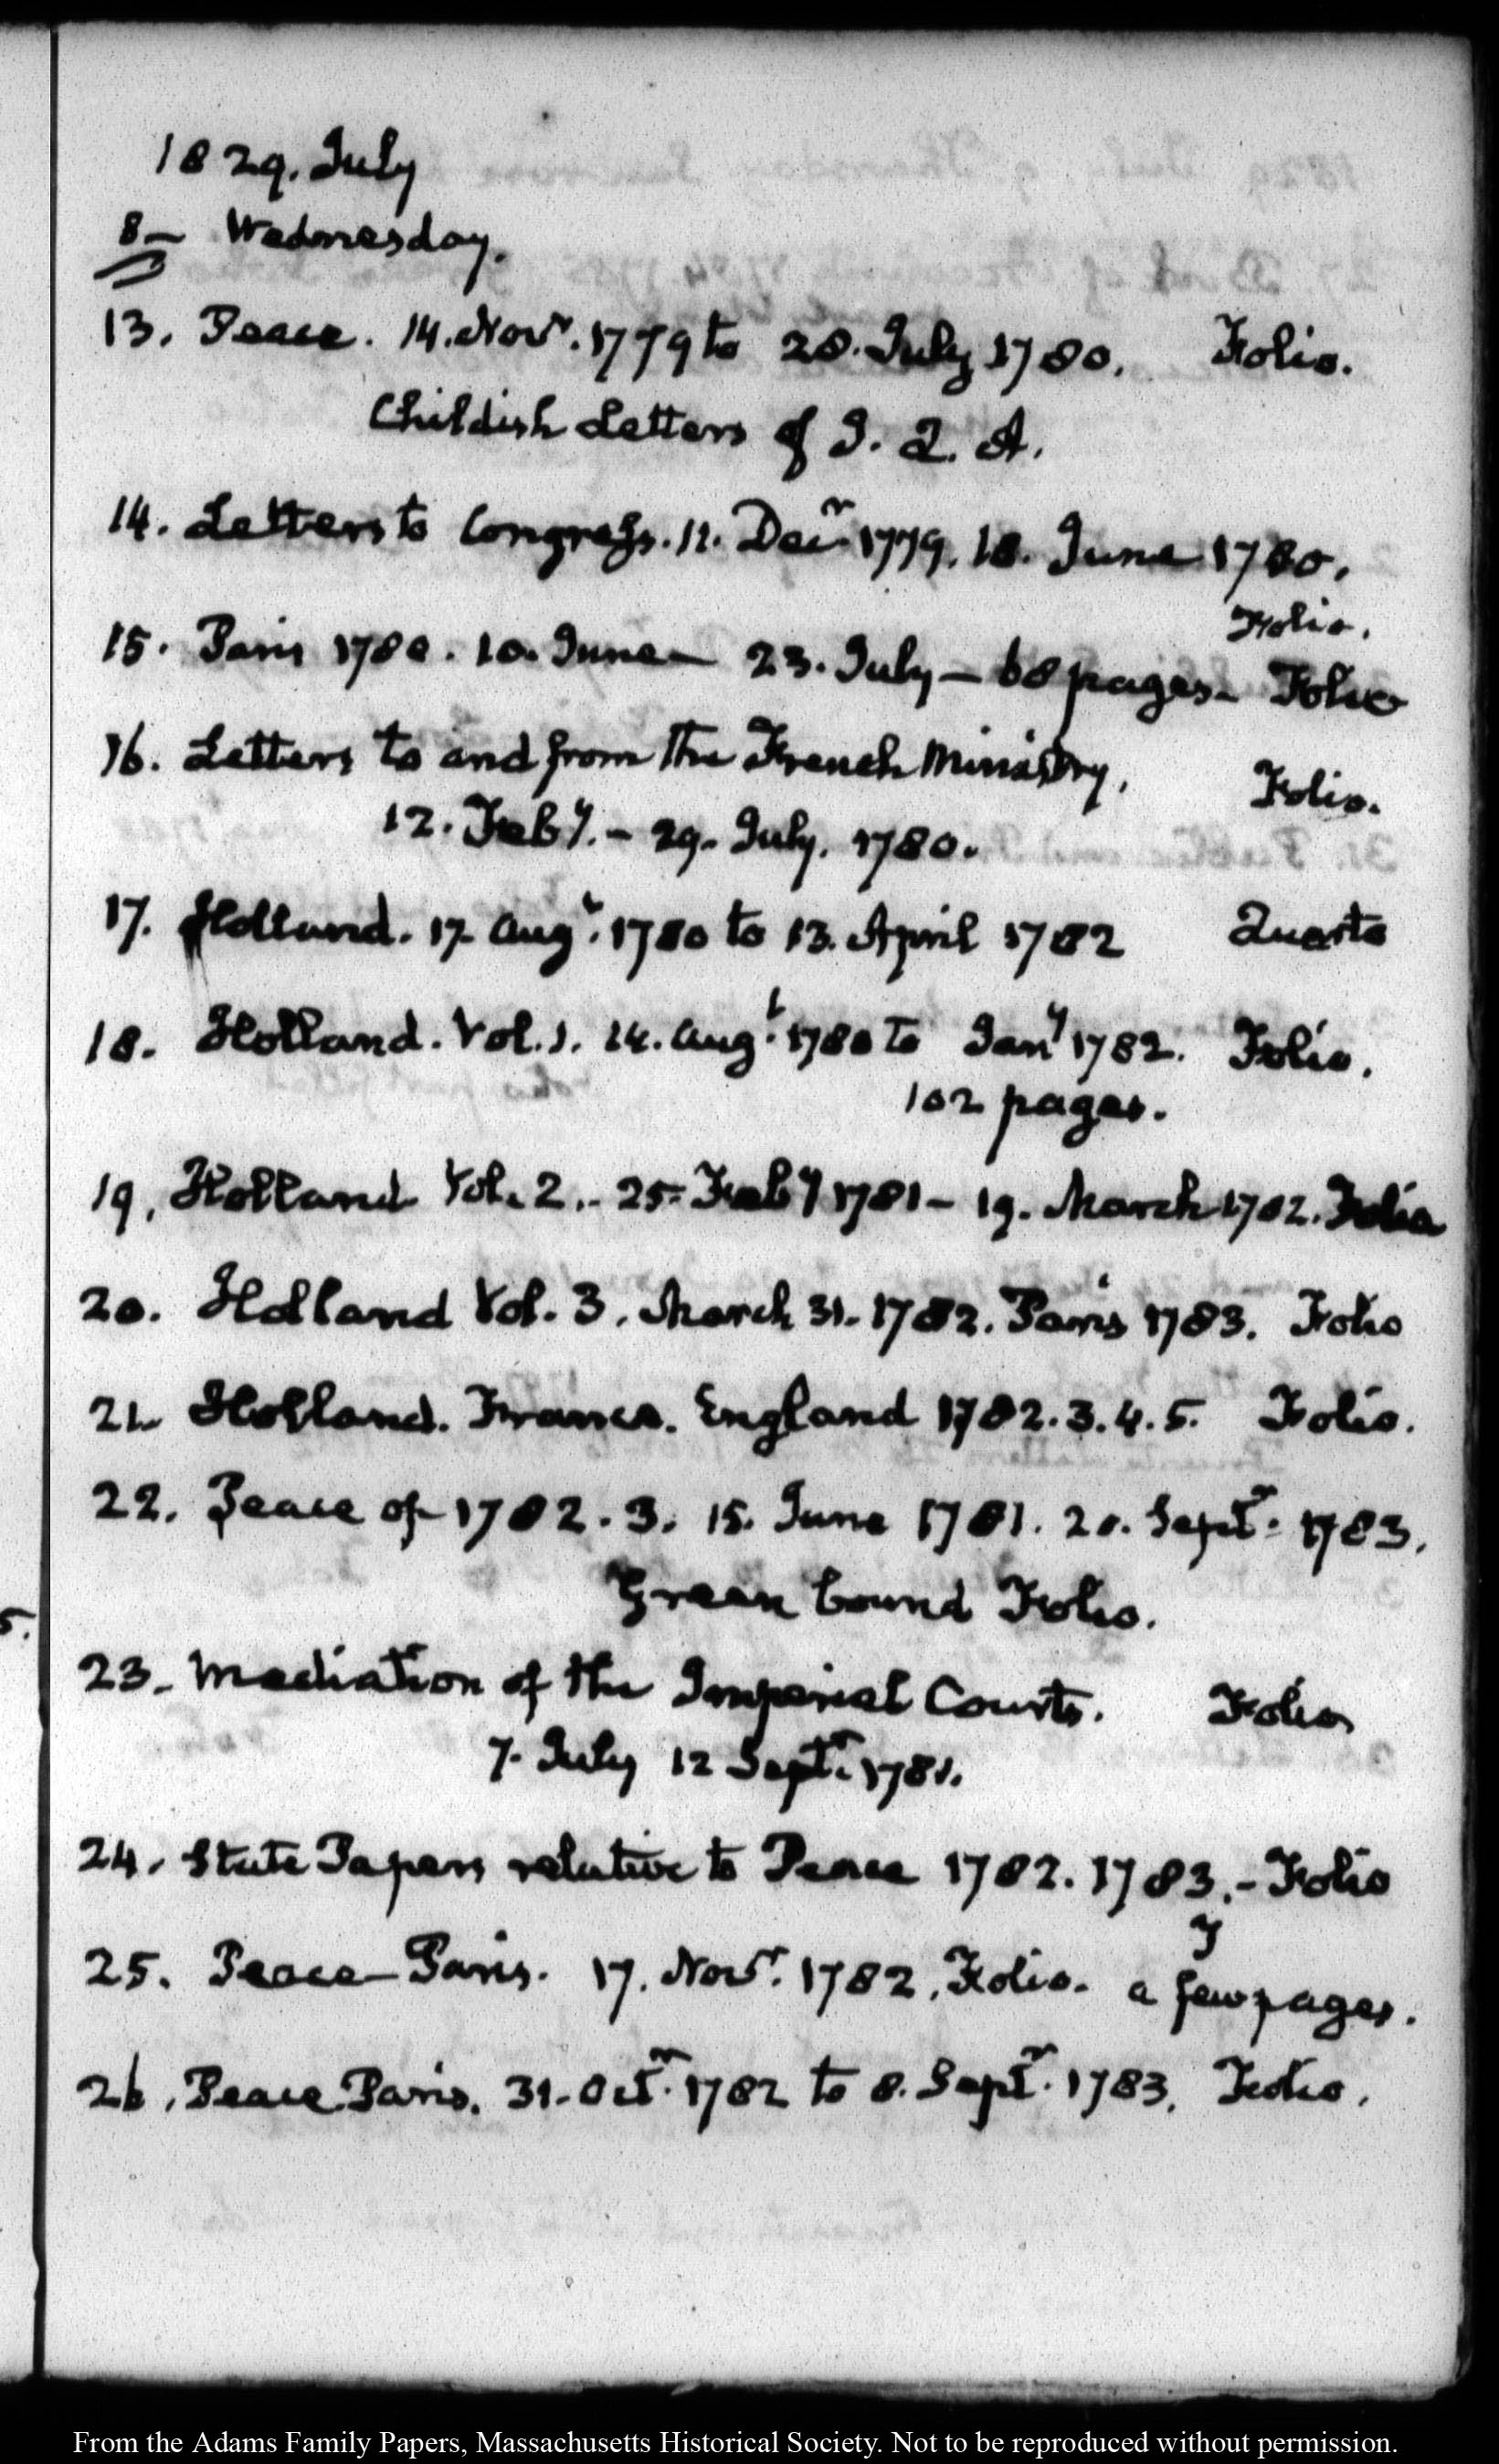 1829. July
8— Wednesday.
13. Peace. 14. Novr. 1779 to 28. July 1780. Folio.
Childish Letters of J. Q. A.
14. Letters to Congress. 11. Decr 1779. 18. June 1780.
Folio.
15. Paris 1780. 10. June— 23. July— 68 pages— Folio
16. Letters to and from the French Ministry, Folio.
12. Feby. — 29. July. 1780.
17. Holland. 17. Augt. 1780 to 13. April 1782 Quarto
18. Holland. Vol. 1. 14. Augt. 1780 to Jany 1782. Folio.
102 pages.
19. Holland Vol. 2. — 25. Feby 1781 — 19. March 1782. Folio
20. Holland Vol. 3. March 31. 1782. Paris 1783. Folio
21. Holland. France. England 1782. 3. 4. 5. Folio.
22. Peace of 1782. 3. 15. June 1781. 20. Septr. 1783.
Green bound Folio.
23. Mediation of the Imperial Courts. Folio
7. July 12 Septr. 1781.
24. State Papers relative to Peace 1782. 1783. — Folio
25. Peace— Paris. 17. Novr. 1782. Folio. a few pages.
26. Peace Paris. 31. Octr. 1782 to 8. Septr. 1783. Folio.
5.
From the Adams Family Papers, Massachusetts Historical Society. Not to be reproduced without permission.